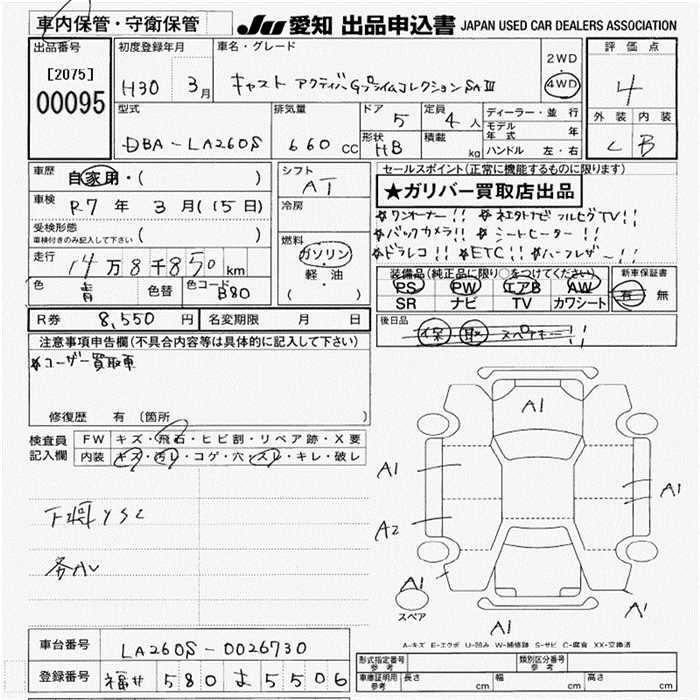 車内保管・守衛保管
JU 愛知 出品申込書 JAPAN USED CAR DEALERS ASSOCIATION
出品番号
[2075]
00095
初度登録年月
H30 3月
車名・グレード
キャスト アクティバGプライムコレクションSAⅢ
2WD
・
4WD
評価点
4
外装 内装
C B
型式
DBA-LA260S
排気量
660 CC
ドア
5
定員
4人
形状
HB
積載
kg
ディーラー・並行
モデル年式 年
ハンドル 左・右
車歴
自家用・( )
車検
R7年 3月(15日)
受検形態
車検付きのみ記入して下さい ( )
走行
14万8千850km
色
青
色替
色コード
B80
シフト
AT
冷房
燃料
ガソリン
・
軽油
( )
セールスポイント(正常に機能するものに限ります)
★ガリバー買取店出品
☆ワンオーナー!! ☆ネエタナビフルセグTV!!
☆バックカメラ!! ☆シートヒーター!!
☆ドラレコ!! ☆ETC!! ☆ハーフレザー!!
装備品(純正品に限り○をつけてください)
PS PW エアB AW
SR ナビ TV カワシート
新車保証書
有 無
R券 8,550円 名変期限 月 日
後日品
保・取 スペアキー!!
注意事項申告欄(不具合内容等は具体的に記入して下さい)
☆ユーザー買取車
修復歴 有 (箇所
検査員記入欄
FW キズ・飛石・ヒビ割・リペア跡・X要
内装 キズ・汚レ・コゲ・穴・スレ・キレ・破レ
下廻サビ
各AU
A1
A1
A1
A2
A1
A1
A1
スペア
A-キズ E-エクボ U-凹み W-補修跡 S-サビ C-腐食 XX-交換済
車台番号 LA260S-0026730
登録番号 福井 580 よ 5506
形式指定番号 参考
類別区分番号 参考
車庫証明用 参考
長さ cm 幅 cm 高さ cm